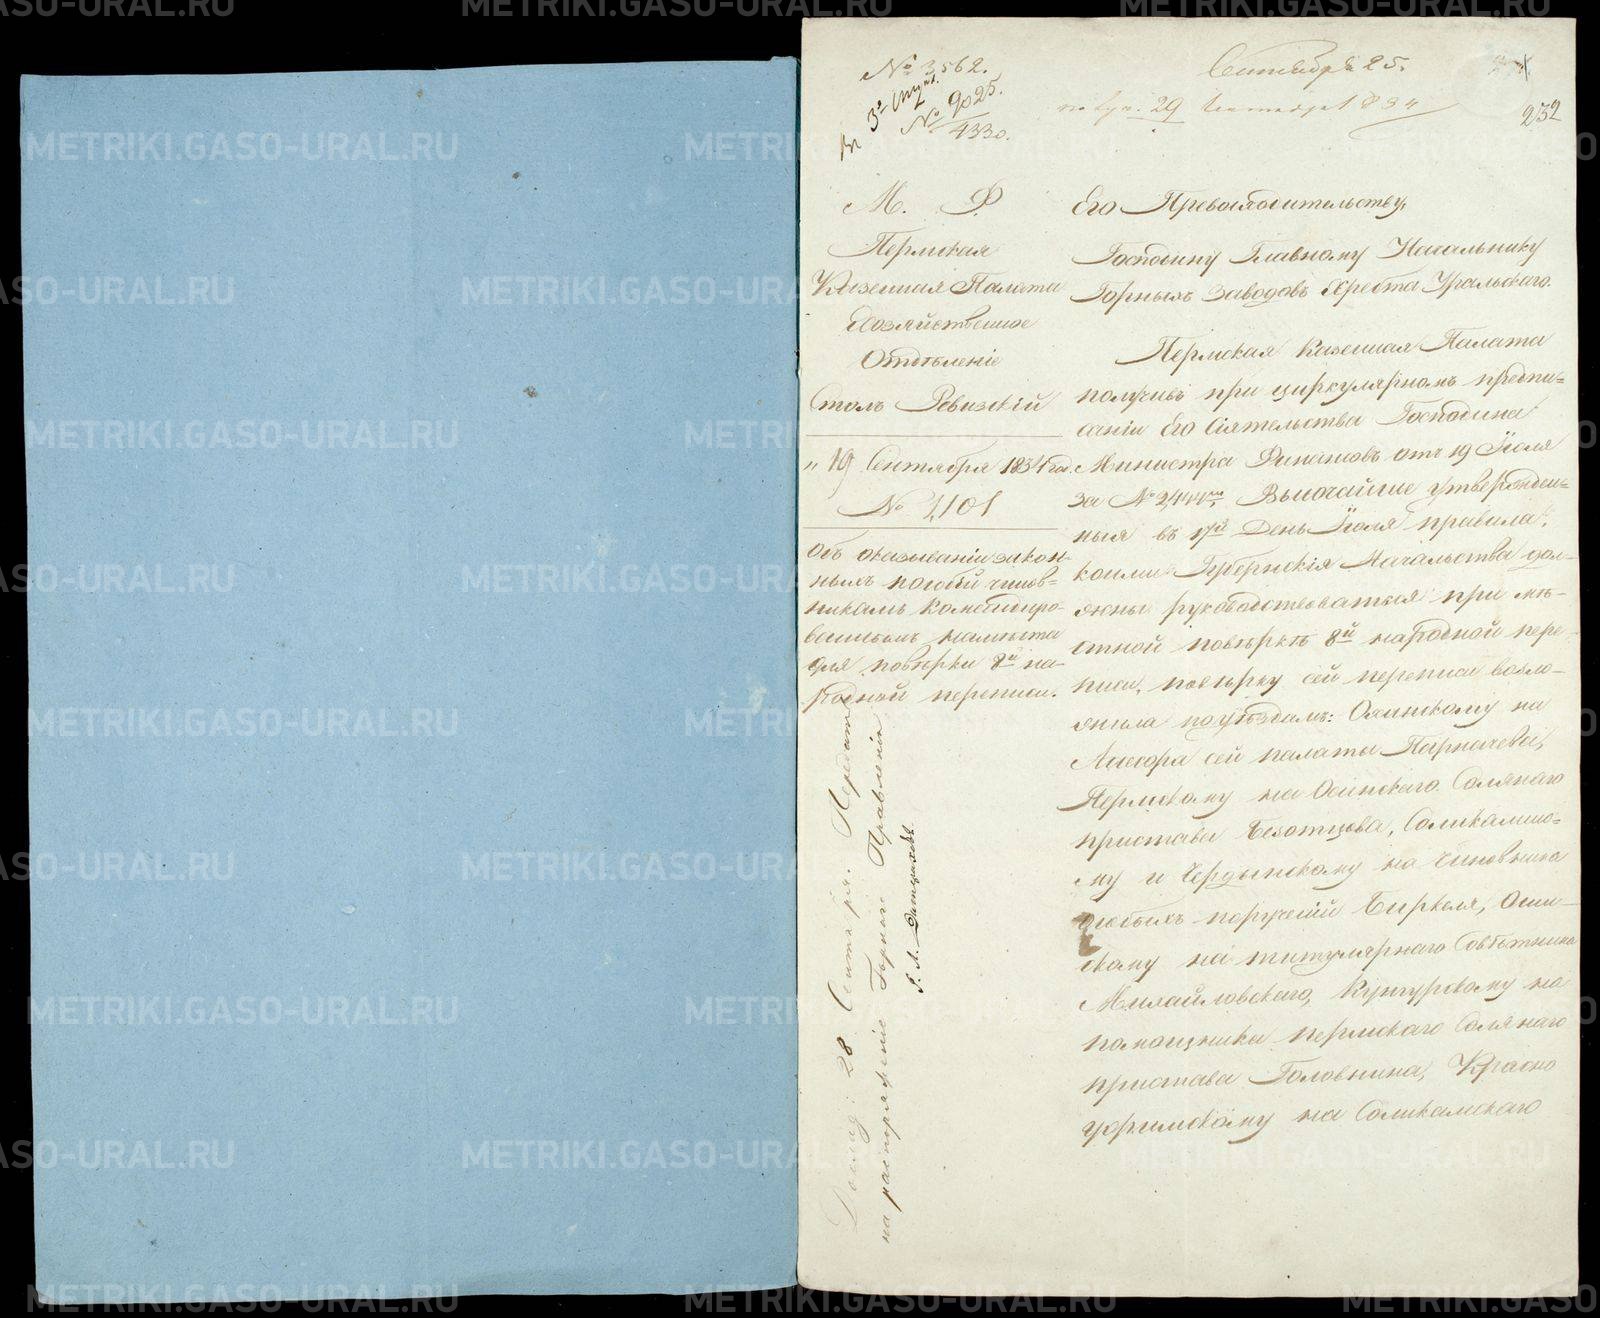 № 3562.
№ 9025.
4330.
Сентября 25.
29 Сентября 1834
232
М. Ф.
Пермская
Казенная Палата
Хозяйственное
Отдѣленіе
Столъ Ревизскій
„19 Сентября 1834 год.
№ 1101
Объ оказываніи закон-
ныхъ пособій чинов-
никамъ командиро-
ваннымъ намѣста
для повѣрки 8й на-
родной переписи.
Доклад: 28 Сентября. Передать
на распоряженіе Горнаго Правленія
Его Превосходительству,
Господину Главному Начальнику
Горныхъ Заводовъ Хребта Уральскаго.
Пермская Казенная Палата
получивъ при циркулярномъ предпи=
саніи Его Сіятельства Господина
Министра Финансовъ отъ 19 Іюля
за № 2,444мъ, Высочайше утвержден=
ныя въ 17й день Іюля правила,
коими Губернскія Начальства дол-
жны руководствоваться при мѣ-
стной повѣркѣ 8й народной пере-
писи, повѣрку сей переписи возло-
жила по уѣздамъ: Оханскому на
Ассесора сей палаты Парначева,
Пермскому на Осинскаго Солянаго
пристава Безотцова, Соликамско=
му и Чердынскому на чиновника
особыхъ порученій Биркеля, Осин-
скому на титулярнаго Совѣтника
Михайловскаго, Кунгурскому на
помощника пермскаго Солянаго
пристава Головнина, Красно
уфимскому на Соликамскаго
METRIKI.GASO-URAL.RU